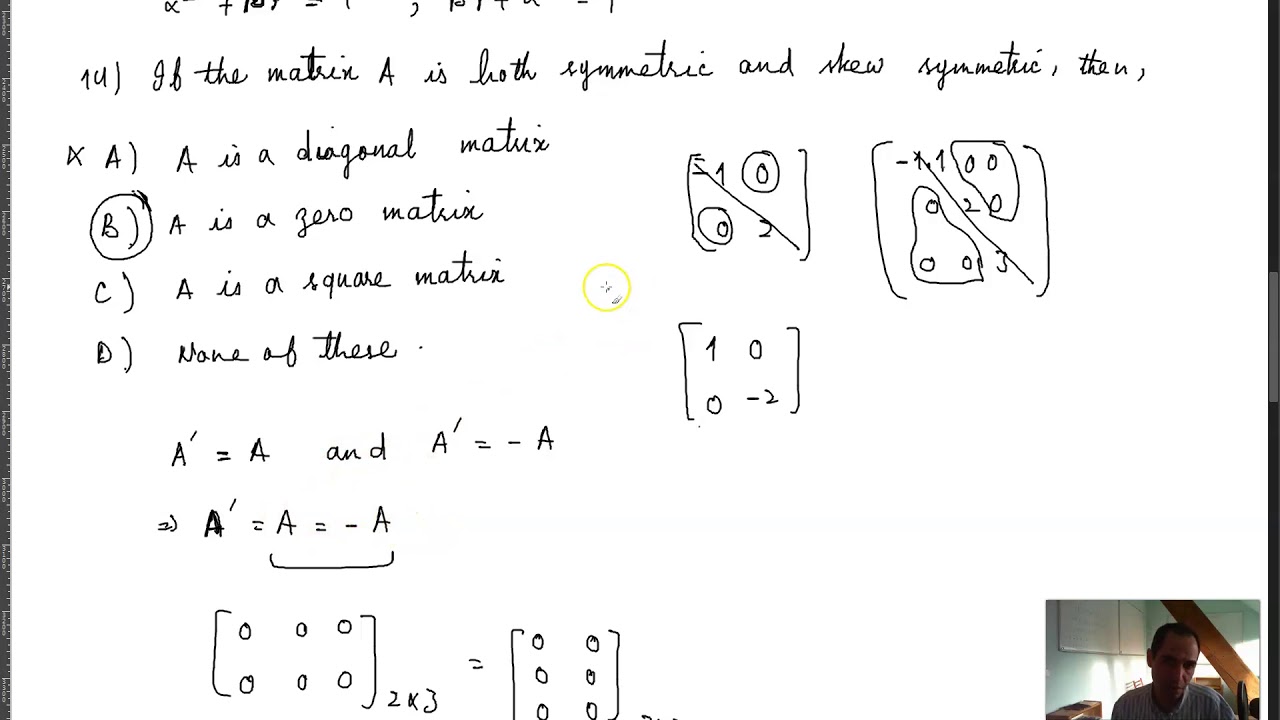 14) If the matrix A is both symmetric and skew symmetric, then,
A) A is a diagonal matrix
B) A is a zero matrix
C) A is a square matrix
D) None of these .
[ 1 0
0 2 ]
1 0 0
0 2 0
0 0 3
[ 1 0
0 -2 ]
A' = A and A' = - A
⇒ A' = A = - A
[ 0 0 0
0 0 0 ] 2x3
=
[ 0 0
0 0
0 0